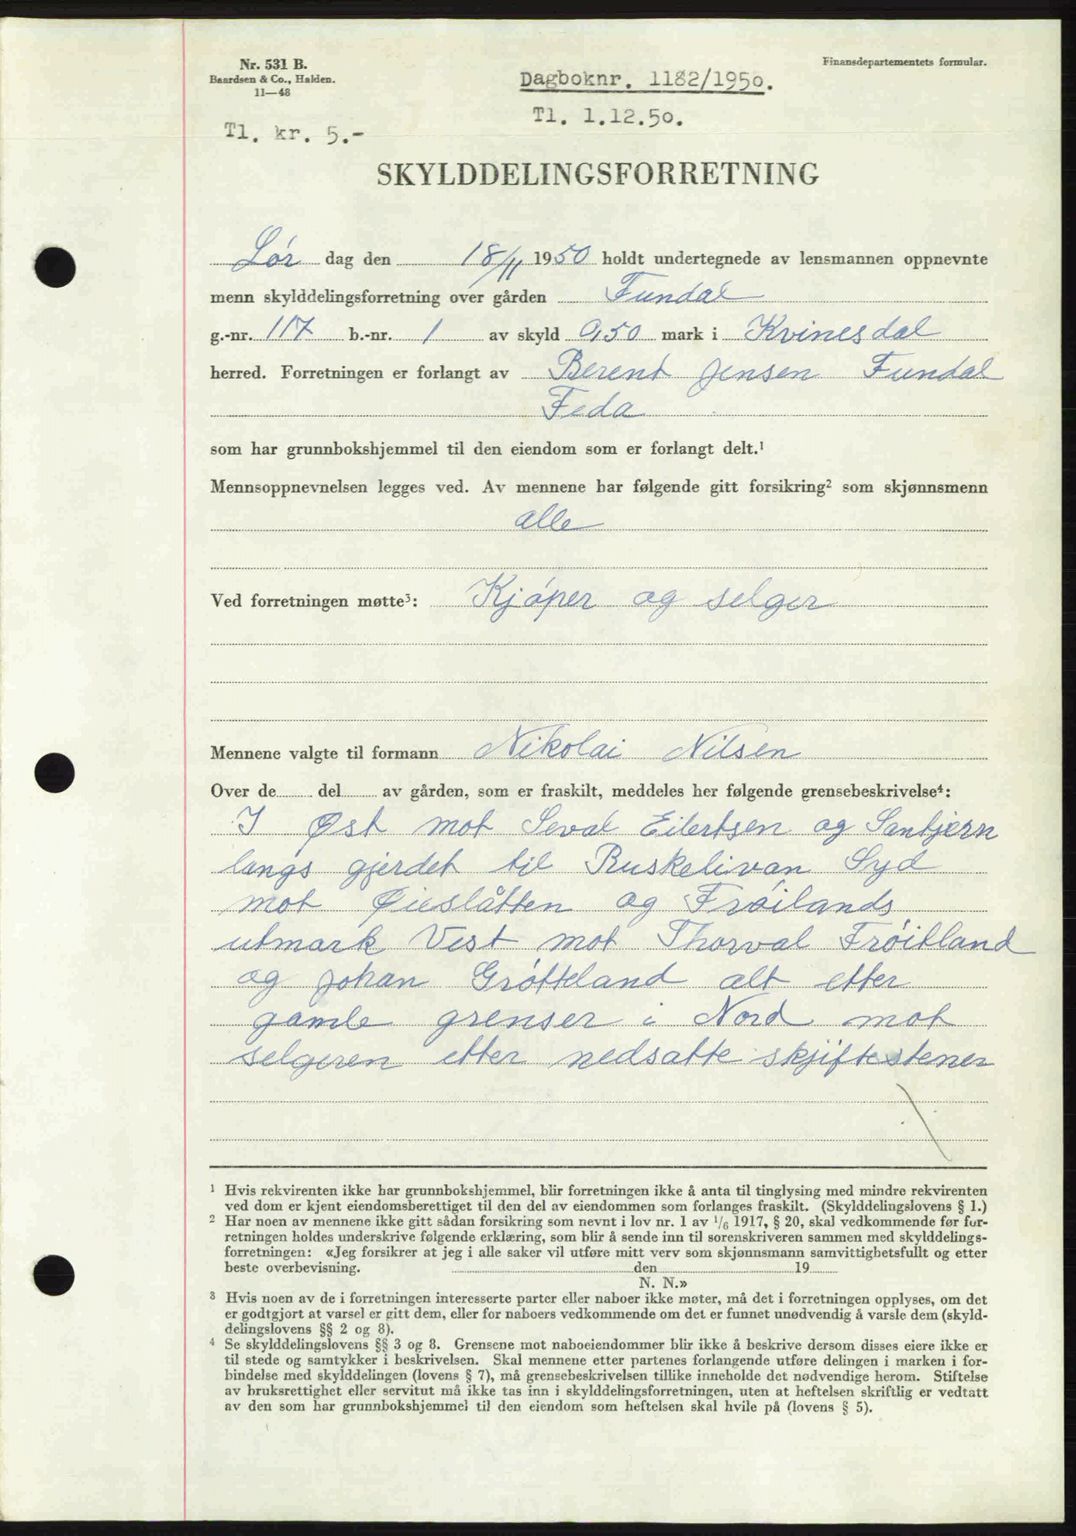 Nr. 531 B.
Baardsen & Co., Halden.
11—48
Finansdepartementets formular.
Dagboknr. 1182/1950.
Tl. 1.12.50.
Tl. kr. 5.-
SKYLDDELINGSFORRETNING
Lør dag den 18/11 1950 holdt undertegnede av lensmannen oppnevnte
menn skylddelingsforretning over gården Fundal
g.-nr. 117 b.-nr. 1 av skyld 0,50 mark i Kvinesdal
herred. Forretningen er forlangt av Berent Jensen Fundal
Feda
som har grunnbokshjemmel til den eiendom som er forlangt delt.¹
Mennsoppnevnelsen legges ved. Av mennene har følgende gitt forsikring² som skjønnsmenn
alle
Ved forretningen møtte³: Kjøper og selger
Mennene valgte til formann Nikolai Nilsen
Over de del av gården, som er fraskilt, meddeles her følgende grensebeskrivelse⁴:
I Øst mot Seval Eilertsen og Sanbjern
langs gjerdet til Ruskelivan Syd
mot Øieslåtten og Frøilands
utmark Vest mot Thorval Frøitland
og Johan Grøtteland alt etter
gamle grenser i Nord mot
selgeren etter nedsatte skjiftestener
¹ Hvis rekvirenten ikke har grunnbokshjemmel, blir forretningen ikke å anta til tinglysing med mindre rekvirenten
ved dom er kjent eiendomsberettiget til den del av eiendommen som forlanges fraskilt. (Skylddelingslovens § 1.)
² Har noen av mennene ikke gitt sådan forsikring som nevnt i lov nr. 1 av ¹/₆ 1917, § 20, skal vedkommende før for-
retningen holdes underskrive følgende erklæring, som blir å sende inn til sorenskriveren sammen med skylddelings-
forretningen: «Jeg forsikrer at jeg i alle saker vil utføre mitt verv som skjønnsmann samvittighetsfullt og etter
beste overbevisning. den 19
N. N.»
³ Hvis noen av de i forretningen interesserte parter eller naboer ikke møter, må det i forretningen opplyses, om det
er godtgjort at varsel er gitt dem, eller for naboers vedkommende om det er funnet unødvendig å varsle dem (skyld-
delingslovens §§ 2 og 8).
⁴ Se skylddelingslovens §§ 3 og 8. Grensene mot naboeiendommer blir ikke å beskrive dersom disses eiere ikke er
til stede og samtykker i beskrivelsen. Skal mennene etter partenes forlangende utføre delingen i marken i for-
bindelse med skylddelingen (lovens § 7), må grensebeskrivelsen tillike inneholde det nødvendige herom. Stiftelse
av bruksrettighet eller servitut må ikke tas inn i skylddelingsforretningen, uten at heftelsen skriftlig er vedtatt
av den som har grunnbokshjemmel til den eiendom som heftelsen skal hvile på (lovens § 5).